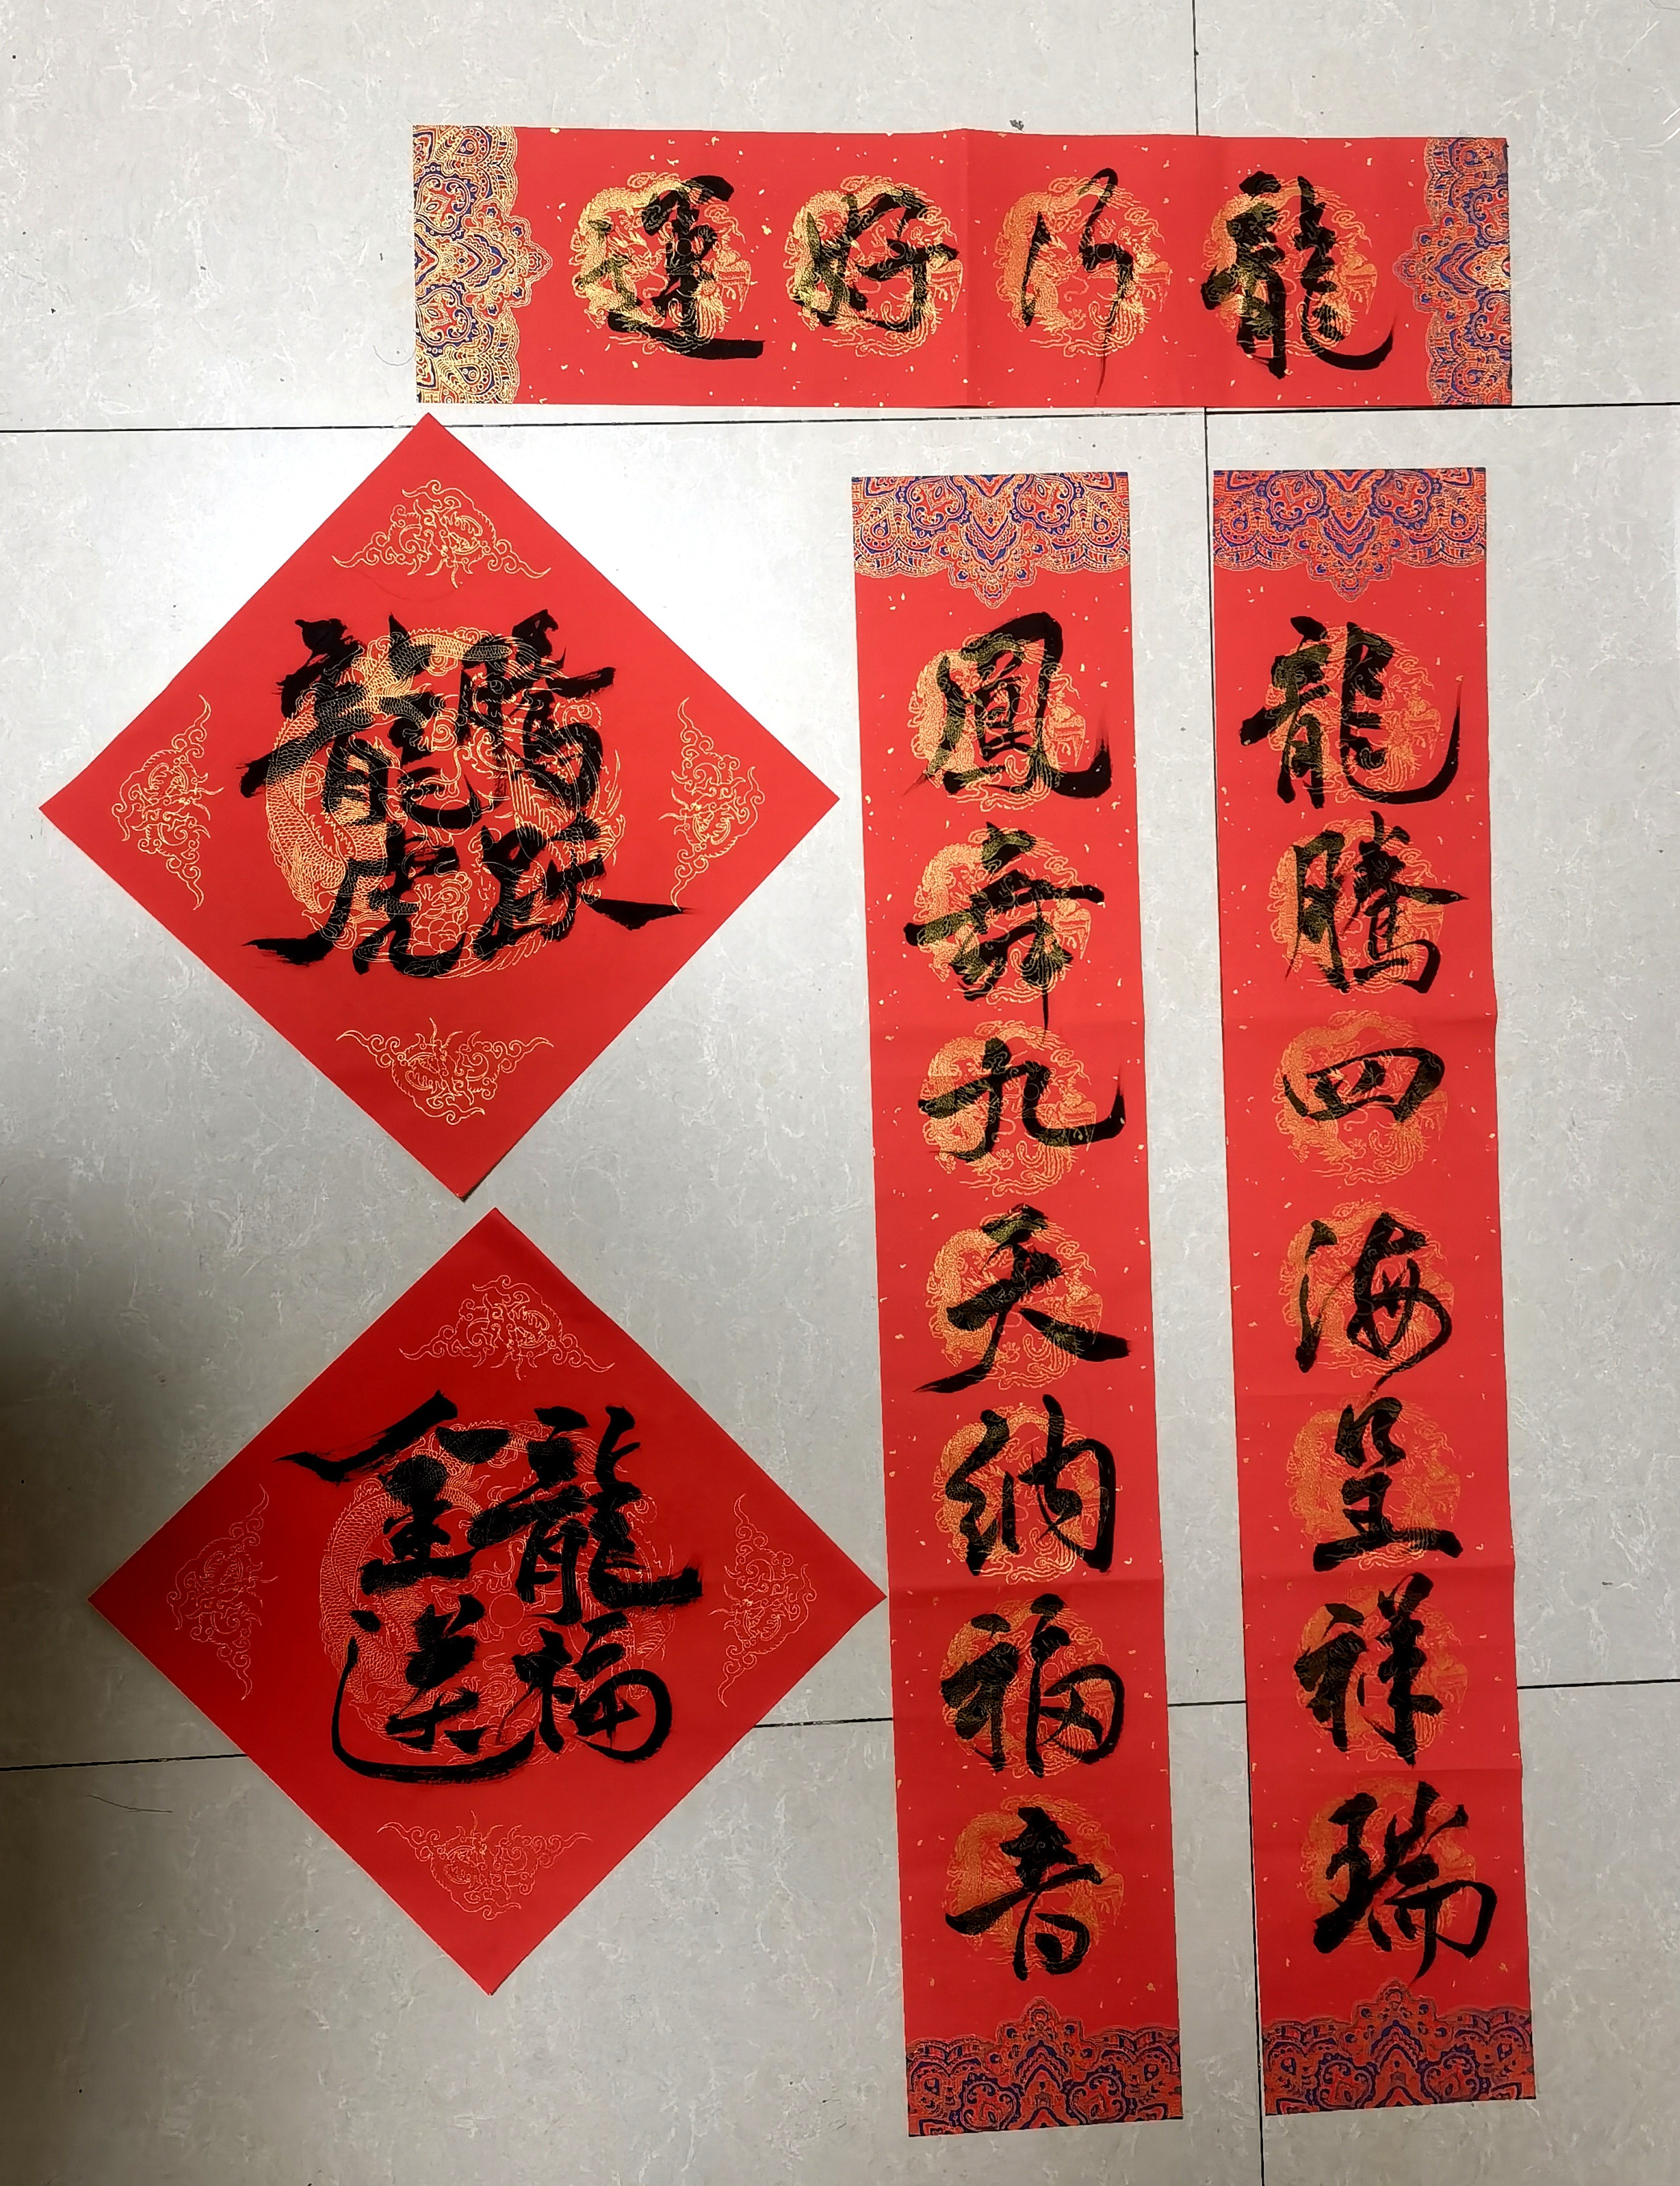 龍行好運
龍騰四海呈祥瑞
鳳舞九天納福音
龍騰
虎跃
金龍
送福